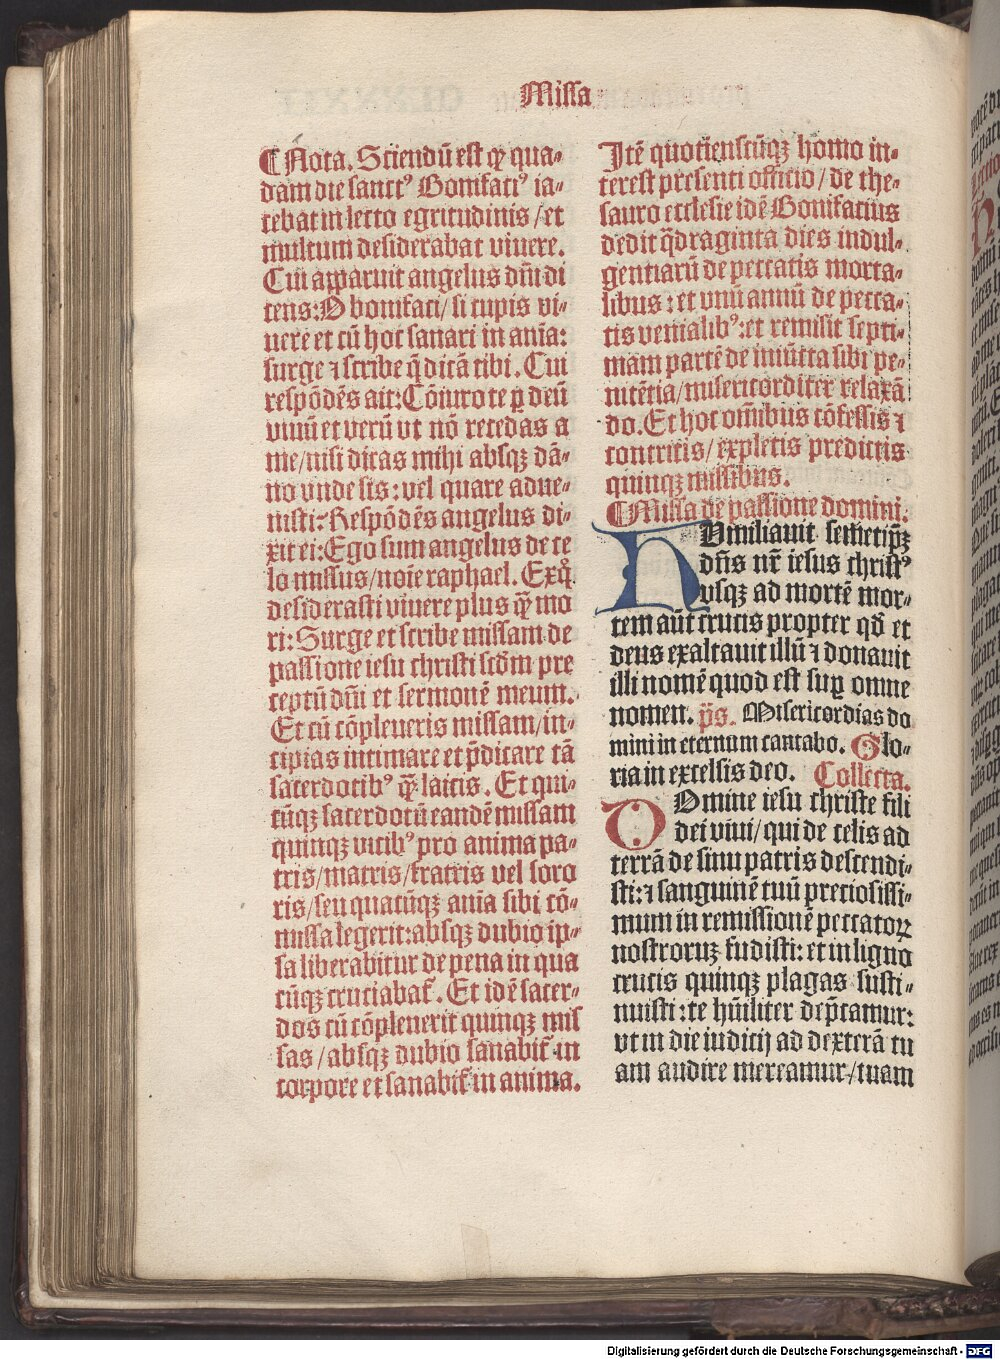 Missa
¶ Nota. Sciendū est ꝙ qua⸗
dam die sanctꝰ Bonifaciꝰ ia⸗
cebat in lecto egritudinis / et
multum desiderabat viuere.
Cui apparuit angelus dñi di
cens: O bonifaci / si cupis vi⸗
uere et cū hoc sanari in aīa:
surge ⁊ scribe q̄ dicā tibi. Cui
respōdēs ait: Cōiuro te ꝑ deū
viuū et verū vt nō recedas a
me / nisi dicas mihi absqꝫ dā⸗
no vnde sis: vel quare adue⸗
nisti? Respōdēs angelus di⸗
xit ei: Ego sum angelus de ce
lo missus / noīe raphael. Exq̊
desiderasti viuere plus q̄ꝫ mo
ri: Surge et scribe missam de
passione iesu christi scd̄m pre
ceptū dñi et sermonē meum.
Et cū cōpleueris missam / in⸗
cipias intimare et p̄dicare tā
sacerdotibꝰ q̄ꝫ laicis. Et qui⸗
cūqꝫ sacerdotū eandē missam
quinqꝫ vicibꝰ pro anima pa⸗
tris / matris / fratris vel soro
ris / seu quacūqꝫ aīa sibi cō⸗
missa legerit: absqꝫ dubio ip⸗
sa liberabitur de pena in qua
cūqꝫ cruciabat᷑. Et idē sacer⸗
dos cū cōpleuerit quinqꝫ mis
sas / absqꝫ dubio sanabit᷑ in
corpore et sanabit᷑ in anima.
Itē quotienscūqꝫ homo in⸗
terest presenti officio / de the⸗
sauro ecclesie idē Bonifacius
dedit q̄draginta dies indul⸗
gentiarū de peccatis morta⸗
libus: et vnū annū de pecca⸗
tis venialibꝰ: et remisit septi⸗
mam partē de iniūcta sibi pe⸗
nitētia / misericorditer relaxā
do. Et hoc om̄ibus cōfessis ⁊
contritis / expletis predictis
quinqꝫ missibus.
¶ Missa de passione domini.
HVmiliauit semetip̄ꝫ
dñs nr̄ iesus christꝰ
vsqꝫ ad mortē mor⸗
tem aūt crucis propter qd̄ et
deus exaltauit illū ⁊ donauit
illi nomē quod est suꝑ omne
nomen. p̄s. Misericordias do
mini in eternum cantabo. Glo⸗
ria in excelsis deo. Collecta.
DOmine iesu christe fili
dei viui / qui de celis ad
terrā de sinu patris descendi⸗
sti: ⁊ sanguinē tuū preciosissi⸗
mum in remissionē peccatoꝝ
nostroruꝫ fudisti: et in ligno
crucis quinqꝫ plagas susti⸗
nuisti: te hūiliter dep̄camur:
vt in die iudicij ad dexterā tu
am audire mereamur / tuam
Digitalisierung gefördert durch die Deutsche Forschungsgemeinschaft - DFG